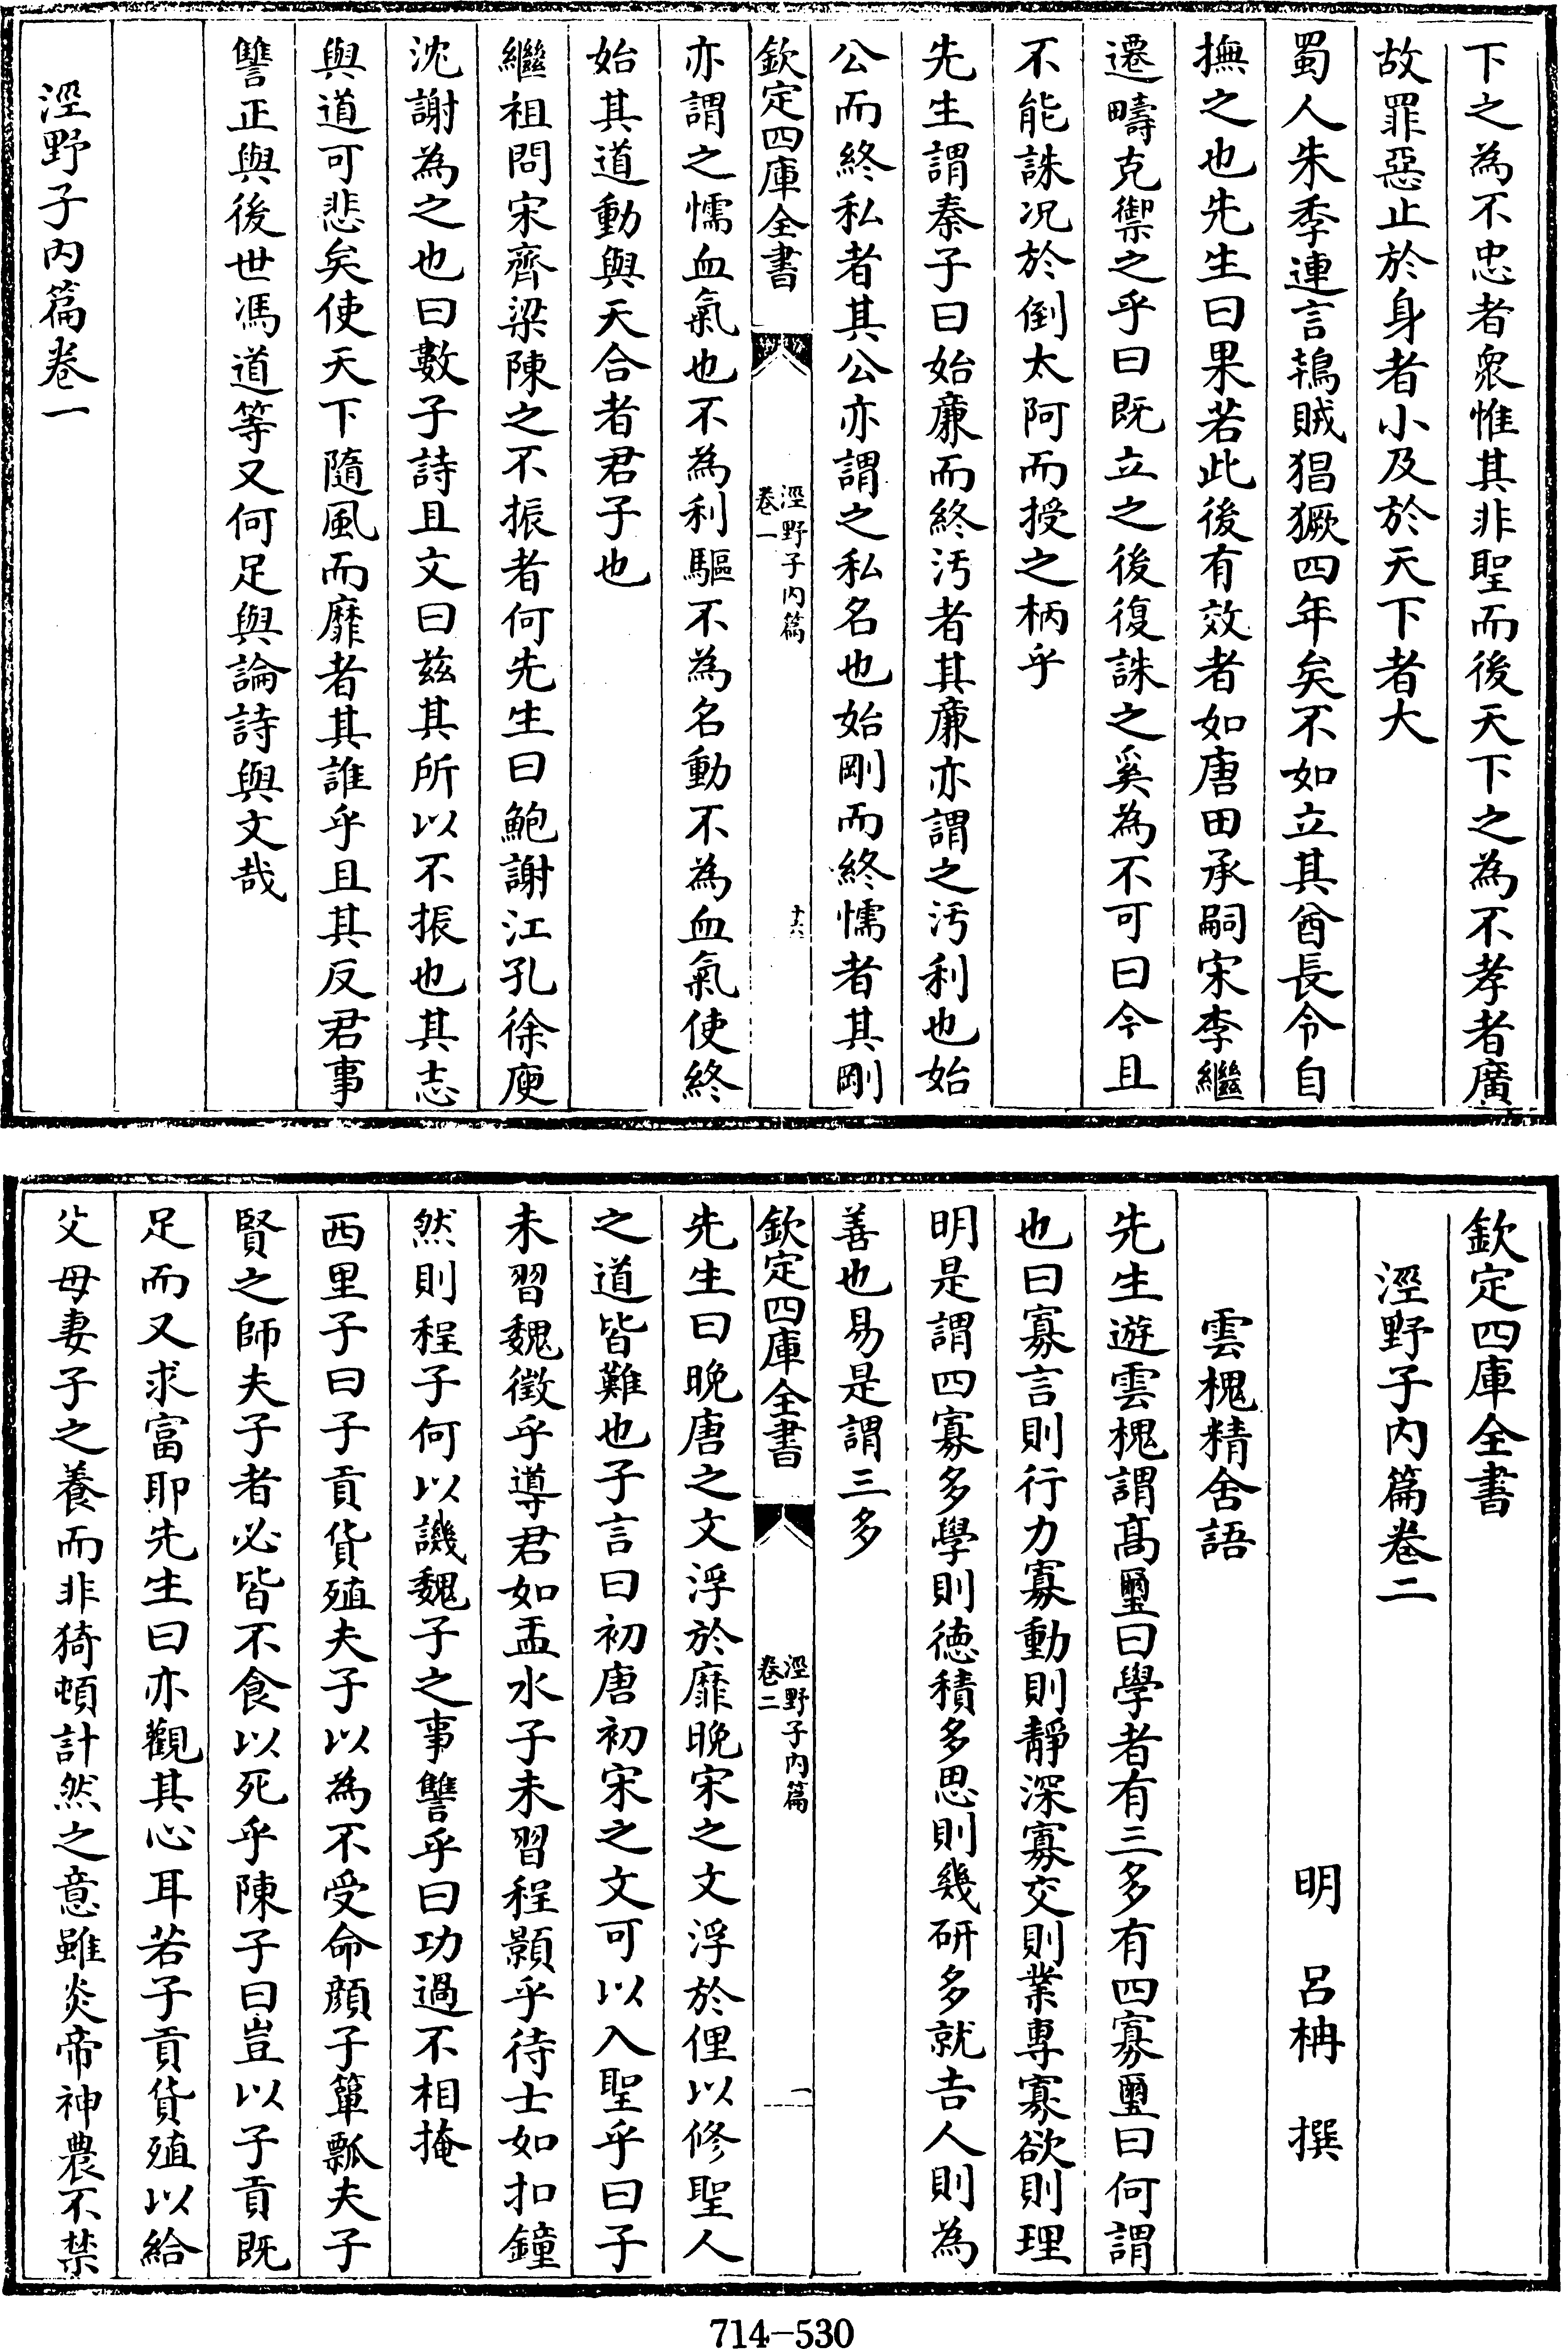 下之為不忠者衆惟其非聖而後天下之為不孝者廣
故罪惡止於身者小及於天下者大
蜀人朱季連言鴇賊猖獗四年矣不如立其酋長令自
撫之也先生曰果若此後有效者如唐田承嗣宋李繼
遷疇克禦之乎曰既立之後復誅之奚為不可曰今且
不能誅况於倒太阿而授之柄乎
先生謂秦子曰始亷而終汚者其亷亦謂之汚利也始
公而終私者其公亦謂之私名也始剛而終懦者其剛
欽定四庫全書
涇野子内篇
卷一
十六
亦謂之懦血氣也不為利驅不為名動不為血氣使終
始其道動與天合者君子也
繼祖問宋齊梁陳之不振者何先生曰鮑謝江孔徐庾
沈謝為之也曰數子詩且文曰兹其所以不振也其志
與道可悲矣使天下隨風而靡者其誰乎且其反君事
讐正與後世馮道等又何足與論詩與文哉
涇野子内篇卷一
欽定四庫全書
涇野子内篇卷二
明 呂柟 撰
雲槐精舍語
先生遊雲槐謂髙璽曰學者有三多有四寡璽曰何謂
也曰寡言則行力寡動則靜深寡交則業專寡欲則理
明是謂四寡多學則德積多思則幾研多就吉人則為
善也易是謂三多
欽定四庫全書
涇野子内篇
卷二
一
先生曰晩唐之文浮於靡晩宋之文浮於俚以修聖人
之道皆難也子言曰初唐初宋之文可以入聖乎曰子
未習魏徵乎導君如盂水子未習程顥乎待士如扣鐘
然則程子何以譏魏子之事讐乎曰功過不相掩
西里子曰子貢貨殖夫子以為不受命顔子簞瓢夫子
賢之師夫子者必皆不食以死乎陳子曰豈以子貢既
足而又求富耶先生曰亦觀其心耳若子貢貨殖以給
父母妻子之養而非猗頓計然之意雖炎帝神農不禁
714-530